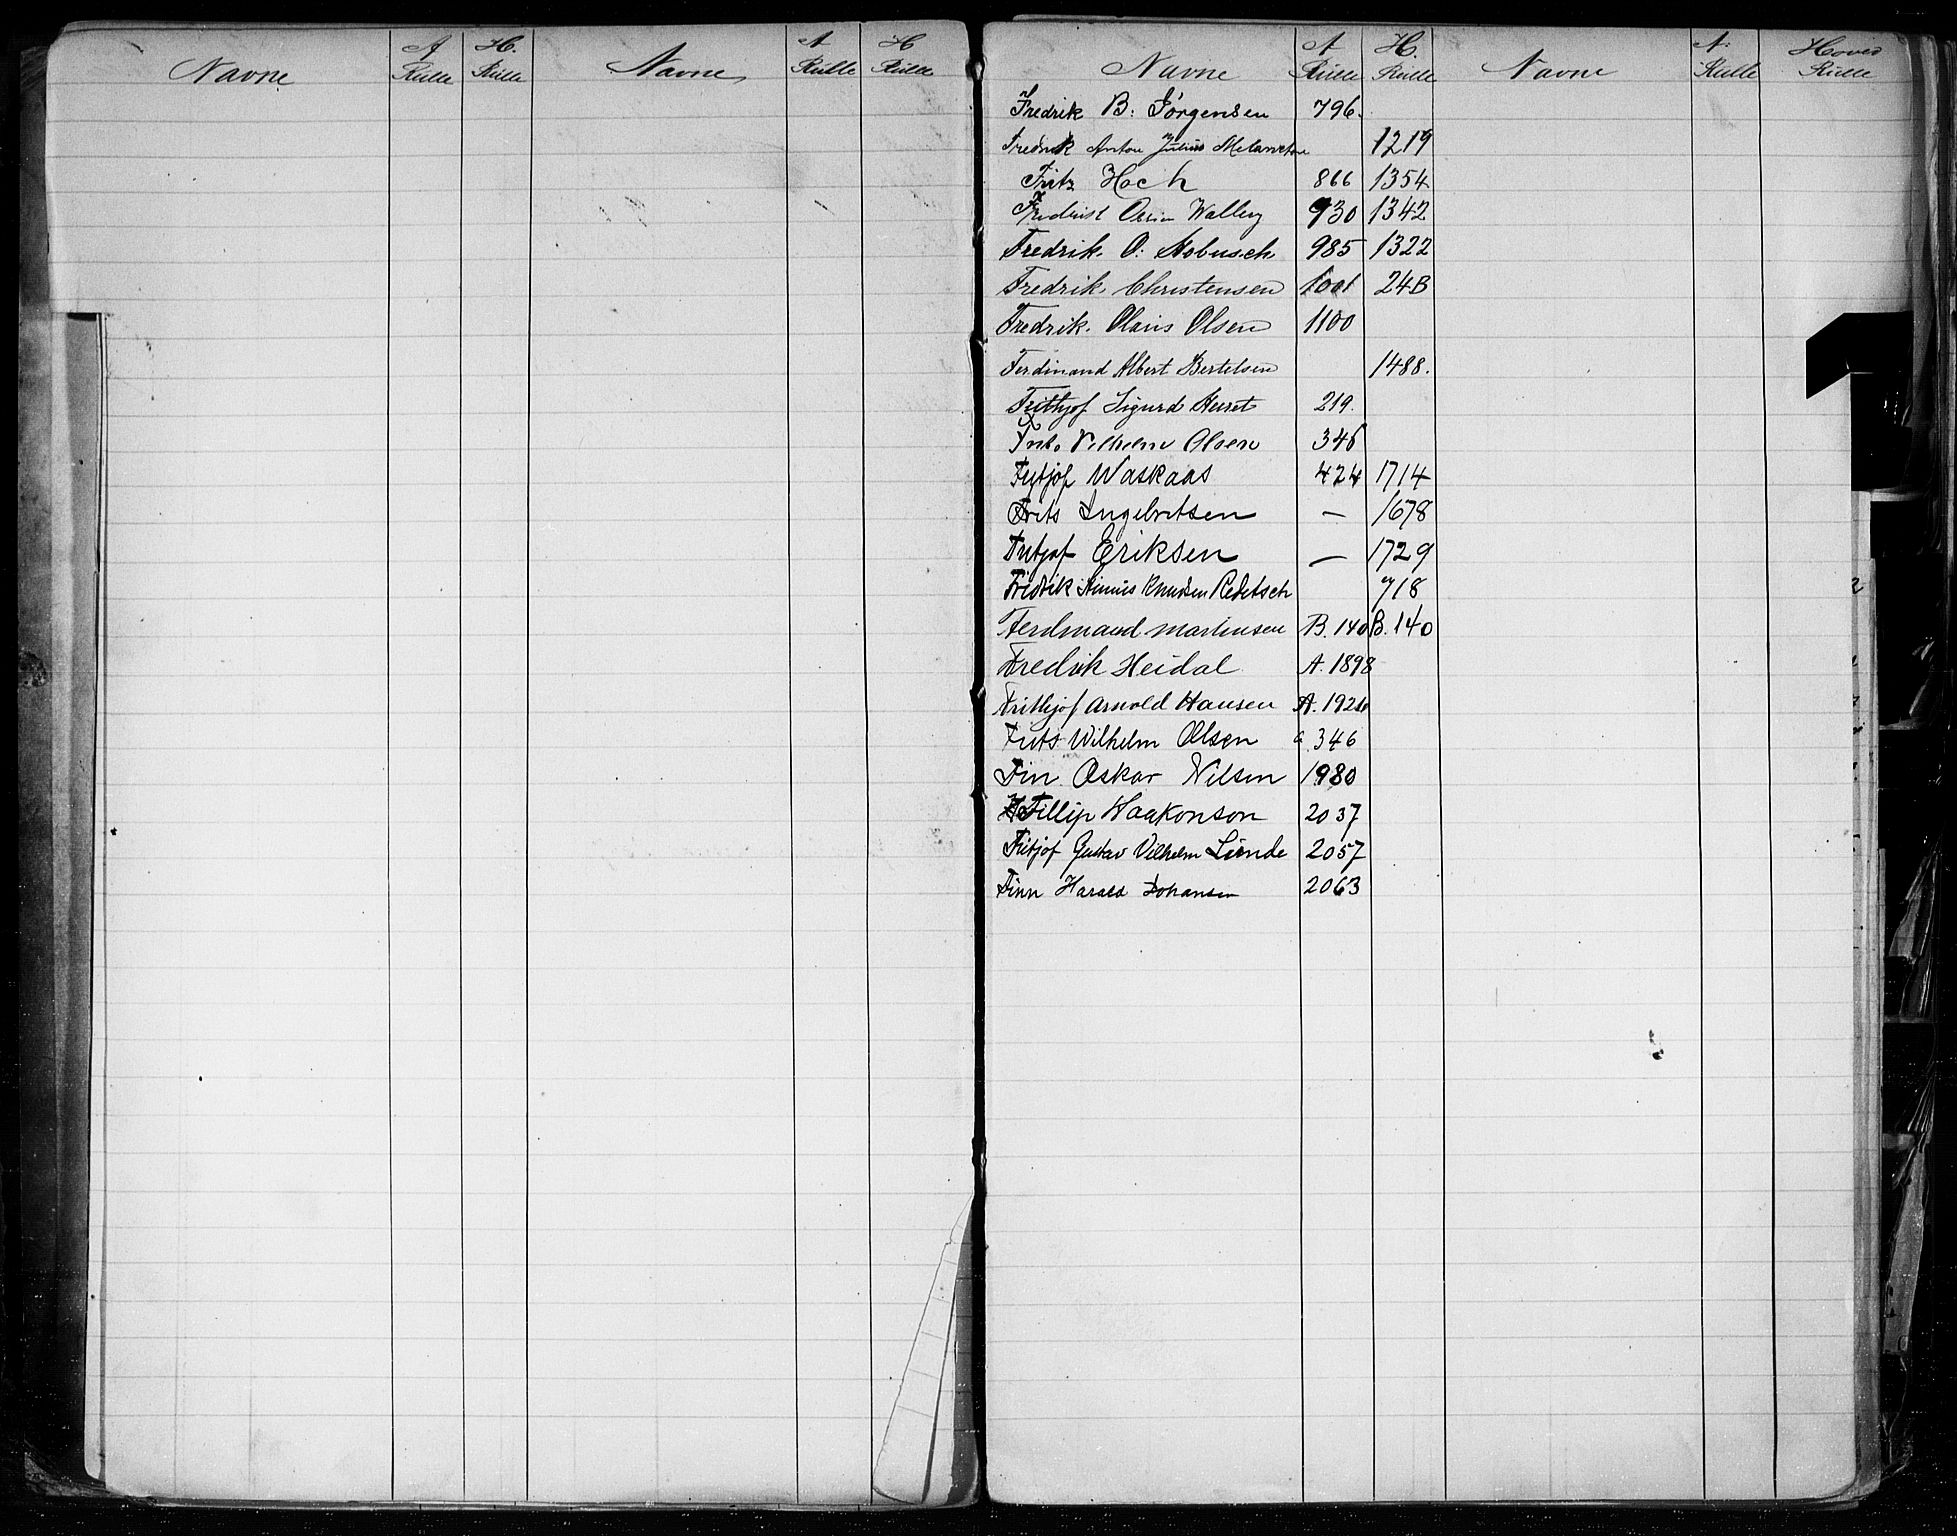 Navne A Rulle H. Rulle Navne A Rulle H Rulle
Navne A Rulle H. Rulle Navne A. Rulle Hoved Rulle
Fredrik B: Jörgensen 796.
Fredrik Anton Julius 1219
Fritz Hoch 866 1354
930 1342
Fredrik. O: 985 1322
Fredrik Christensen 1001 24B
Fredrik. Olaus Olsen 1100
Ferdinand Albert Bertelsen 1488.
Frithjof Sigurd 219.
Vilhelm Olsen 346
Fritjof Waskaas 424 1714
Frits Ingebretsen — 1678
Fritjof Eriksen — 1729
Fredrik Knudsen 718
Ferdinand Martinsen B. 140 B. 140
Fredrik Heidal A. 1898
Frithjof Arnold Hansen A.
Frits Wilhelm Olsen a. 346
Fin. Oskar Nilsen 1980
Fillip Haakonson 2037
Fritjof Gustav Vilhelm Lunde 2057
Finn Harald Johansen 2063